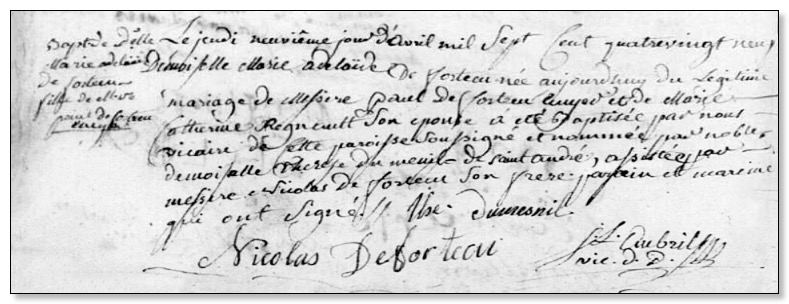 Bapt de Dlle
Marie adelaide
de fortecu
fille de
paul de fortecu
Le jeudi neuvième jour d'avril mil sept cent quatrevingt neuf
Demoiselle Marie adelaïde de fortecu née aujourdhuy du legitime
mariage de Messire paul de fortecu Ecuyer et de Marie
Catherine Regneault son epouse a eté baptisée par nous
vicaire de cette paroisse soussigné et nommée par noble
demoiselle therese du menil de saint andré, assistée par
messire Nicolas de fortecu son frere parein et mareine
qui ont signé. The. dumesnil
Nicolas De fortecu
vic. d. d.